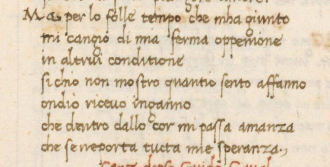 Ma per lo folle tempo che mha giunto
mi cangio di mia ferma oppenione
in altrui conditione
si chio non mostro quantio sento affanno
ondio ricevo inganno
che dentro dallo cor mi passa amanza
che se ne porta tucta mie speranza.